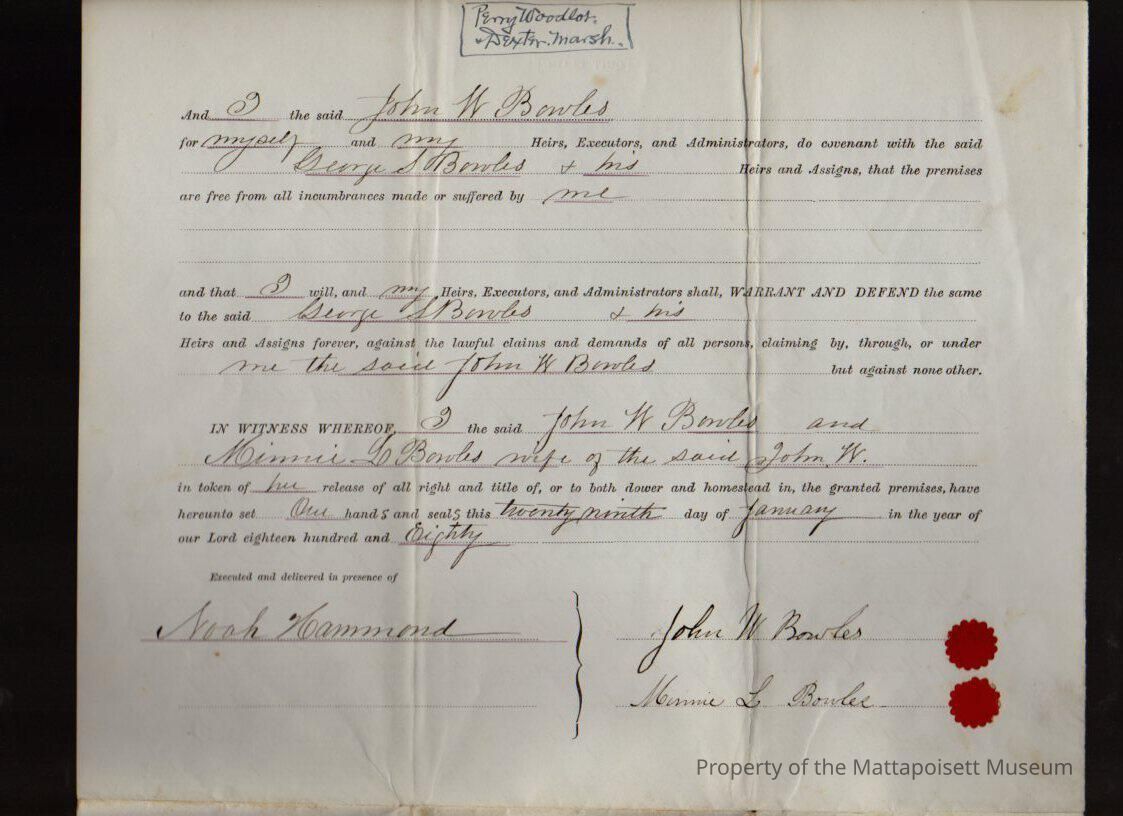 Perry Woodlot.
& Dexter Marsh.
And I the said John W Bowles
for myself and my Heirs, Executors, and Administrators, do covenant with the said
George S Bowles & his Heirs and Assigns, that the premises
are free from all incumbrances made or suffered by me
and that I will, and my Heirs, Executors, and Administrators shall, WARRANT AND DEFEND the same
to the said George S Bowles & his
Heirs and Assigns forever, against the lawful claims and demands of all persons, claiming by, through, or under
me the said John W Bowles but against none other.
IN WITNESS WHEREOF, I the said John W Bowles and
Minnie L Bowles wife of the said John W.
in token of her release of all right and title of, or to both dower and homestead in, the granted premises, have
hereunto set Our hands and seals this twenty ninth day of January in the year of
our Lord eighteen hundred and Eighty
Executed and delivered in presence of
Noah Hammond
John W Bowles
Minnie L Bowles
Property of the Mattapoisett Museum